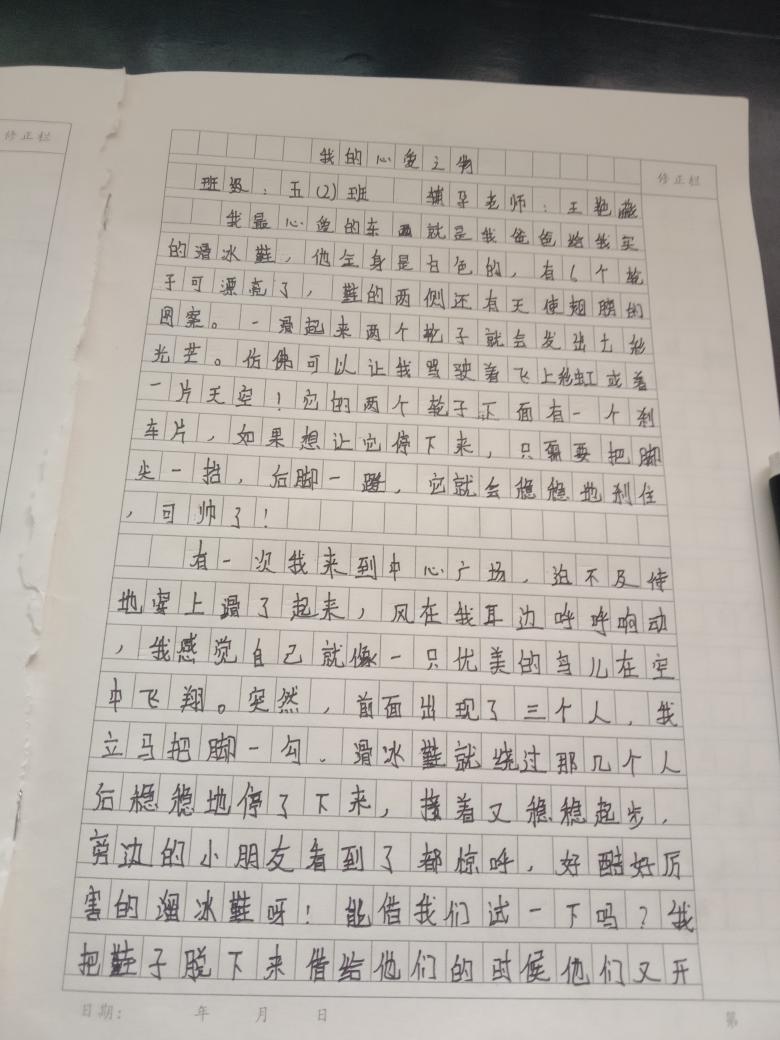 修正栏
修正栏
我的心爱之物
班级：五(2)班 辅导老师：王艳燕
我最心爱的东西就是我爸爸给我买
的滑冰鞋，他全身是白色的，有6个轮
子可漂亮了，鞋的两侧还有天使翅膀的
图案。一滑起来两个轮子就会发出七彩
光芒。仿佛可以让我驾驶着飞上彩虹或着
一片天空！它的两个轮子下面有一个刹
车片，如果想让它停下来，只需要把脚
尖一抬，后脚一蹬，它就会稳稳地刹住
，可帅了！
有一次我来到中心广场，迫不及待
地穿上滑了起来，风在我耳边呼呼响动
，我感觉自己就像一只优美的鸟儿在空
中飞翔。突然，前面出现了三个人，我
立马把脚一勾，滑冰鞋就绕过那几个人
后稳稳地停了下来，接着又稳稳起步，
旁边的小朋友看到了都惊呼，好酷好厉
害的溜冰鞋呀！能借我们试一下吗？我
把鞋子脱下来借给他们的时候他们又开
日期： 年 月 日
第